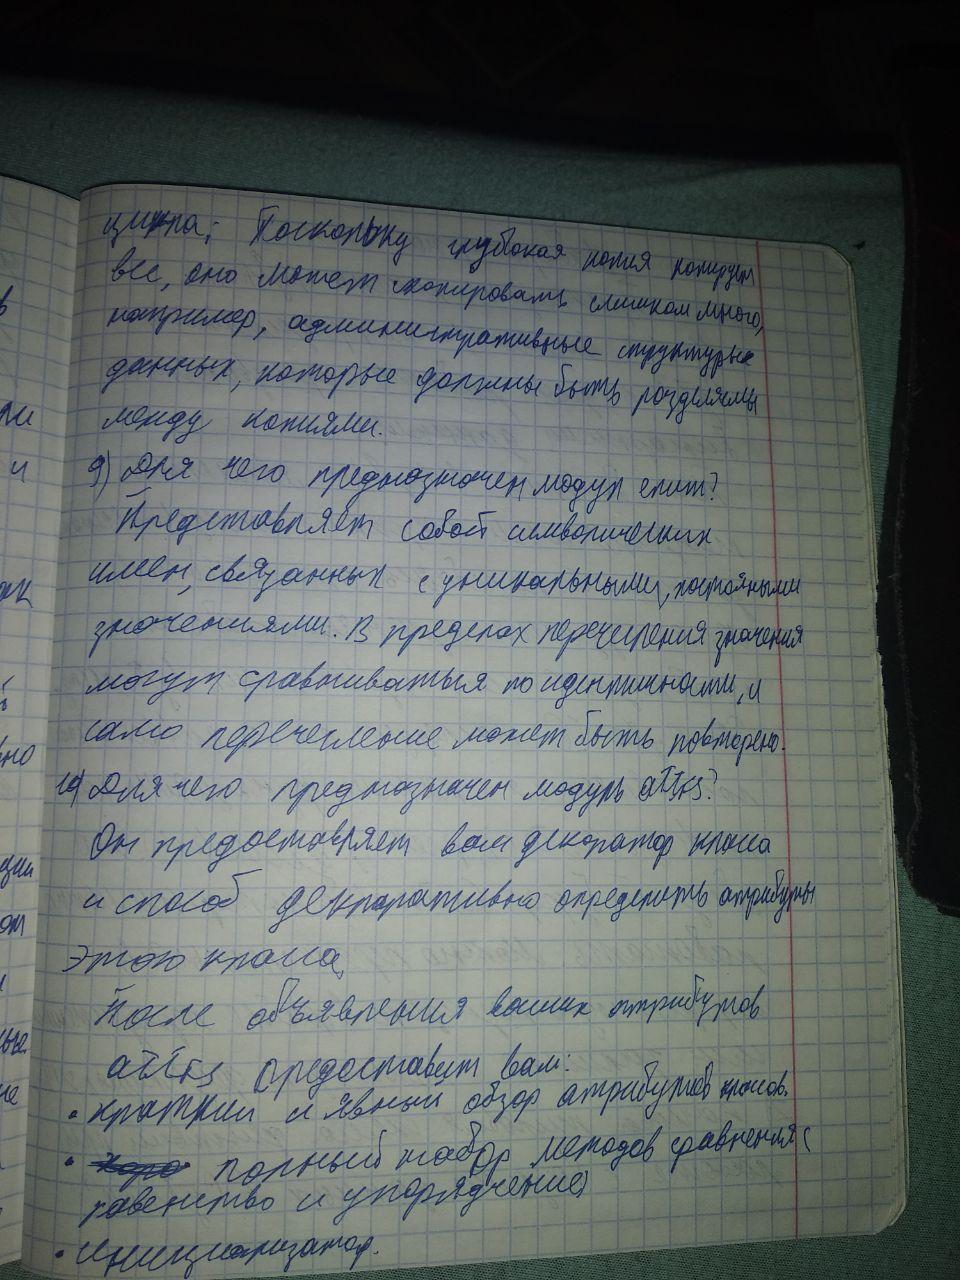 цикла; Поскольку глубокая копия копирует
все, оно может скопировать слишком много,
например, административные структуры
данных, которые должны быть разделяемы
между копиями.
9) Для чего предназначен модул enum?
Представляет собой символических
имен, связанных с уникальными, постояными
значениями. В пределах перечисления значения
могут сравниваться по идентичности, и
само перечисление может быть повторено.
10) Для чего предназначен модуль attrs?
Он предоставляет вам декоратор класса
и способ декларативно определить атрибуты
этого класса.
После объявления ваших атрибутов
attrs предоставит вам:
• краткий и явный обзор атрибутов класов.
• полный набор методов сравнения (
равенство и упорядочение)
• инициализатор.